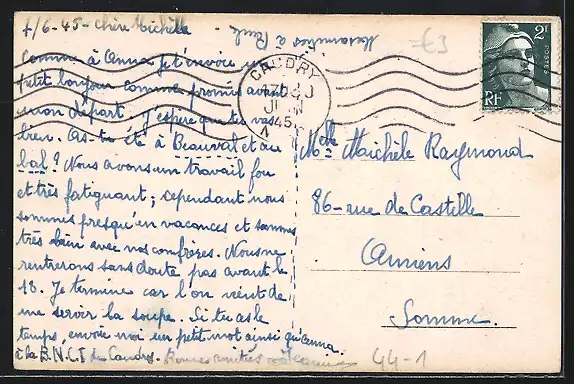 7/6-45- chère Michèle
Comme à Anna je t'envoie un
petit bonjour comme promis avant
mon départ. J'espère que tu vas
bien. As-tu été à Beauval et au
bal? Nous avons un travail fou
et très fatigant; cependant nous
sommes presqu'en vacances et sommes
très bien avec nos confrères. Nous ne
rentrerons sans doute pas avant le
18. Je termine car l'on vient de
me servir la soupe. Si tu as le
temps, envoie moi un petit mot ainsi qu'Anna.
à la B.N.C.I de Caudry.
à Paule
£3
CAUDRY
JUIN
45
2F
RF
Melle Maichèle Raymond
86-rue de Castille
Amiens
Somme.
44-1